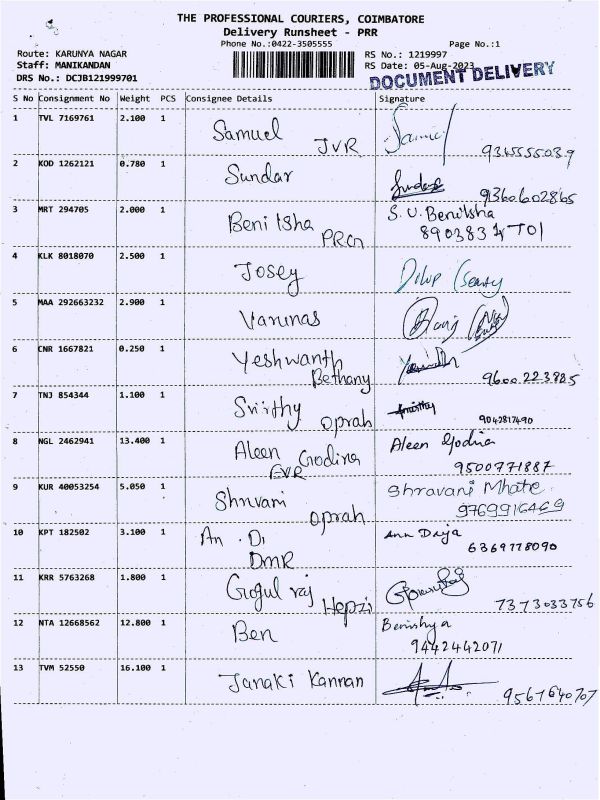 THE PROFESSIONAL COURIERS, COIMBATORE
Delivery Runsheet - PRR
Phone No.:0422-3505555 Page No.:1
Route: KARUNYA NAGAR RS No.: 1219997
Staff: MANIKANDAN RS Date: 05-Aug-2023
DRS No.: DCJB121999701 DOCUMENT DELIVERY
S No Consignment No Weight PCS Consignee Details Signature
1 TVL 7169761 2.100 1 Samuel JVR
2 KOD 1262121 0.780 1 Sundar 9360602865
3 MRT 294705 2.000 1 Benitsha PRCn S. U. Benitsha
4 KLK 8018070 2.500 1 Josey
5 MAA 292663232 2.900 1 Varunas
6 CNR 1667821 0.250 1 Yeshwanth Bethany 9600223885
7 TNJ 854344 1.100 1 oprah 9042817490
8 NGL 2462941 13.400 1 Aleen Godina EVR Aleen Godina 9500771887
9 KUR 40053254 5.050 1 Shravani oprah Shravani Mhate 9769916469
10 KPT 182502 3.100 1 An . Di DMR Ann Diya 6369778090
11 KRR 5763268 1.800 1 Gogul raj Hepzi 7373033756
12 NTA 12668562 12.800 1 Ben 9442442071
13 TVM 52550 16.100 1 Janaki Kannan 9567640707